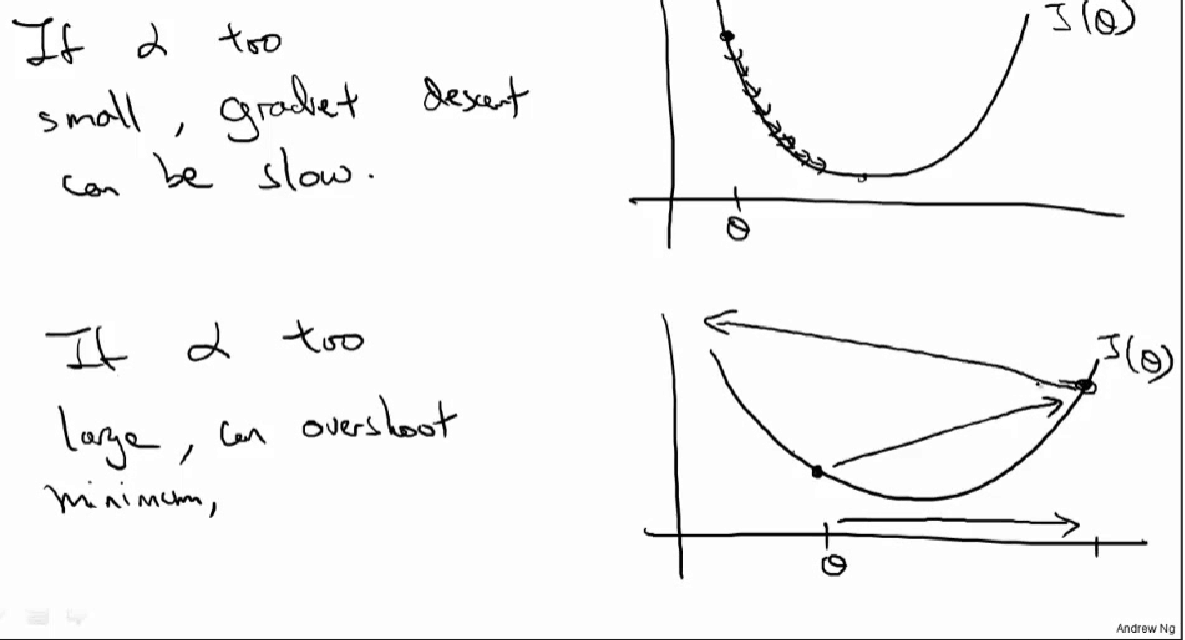 If α too
small, gradiet descent
can be slow.
J(θ)
θ
If α too
large, can overshoot
minimum,
J(θ)
θ
Andrew Ng